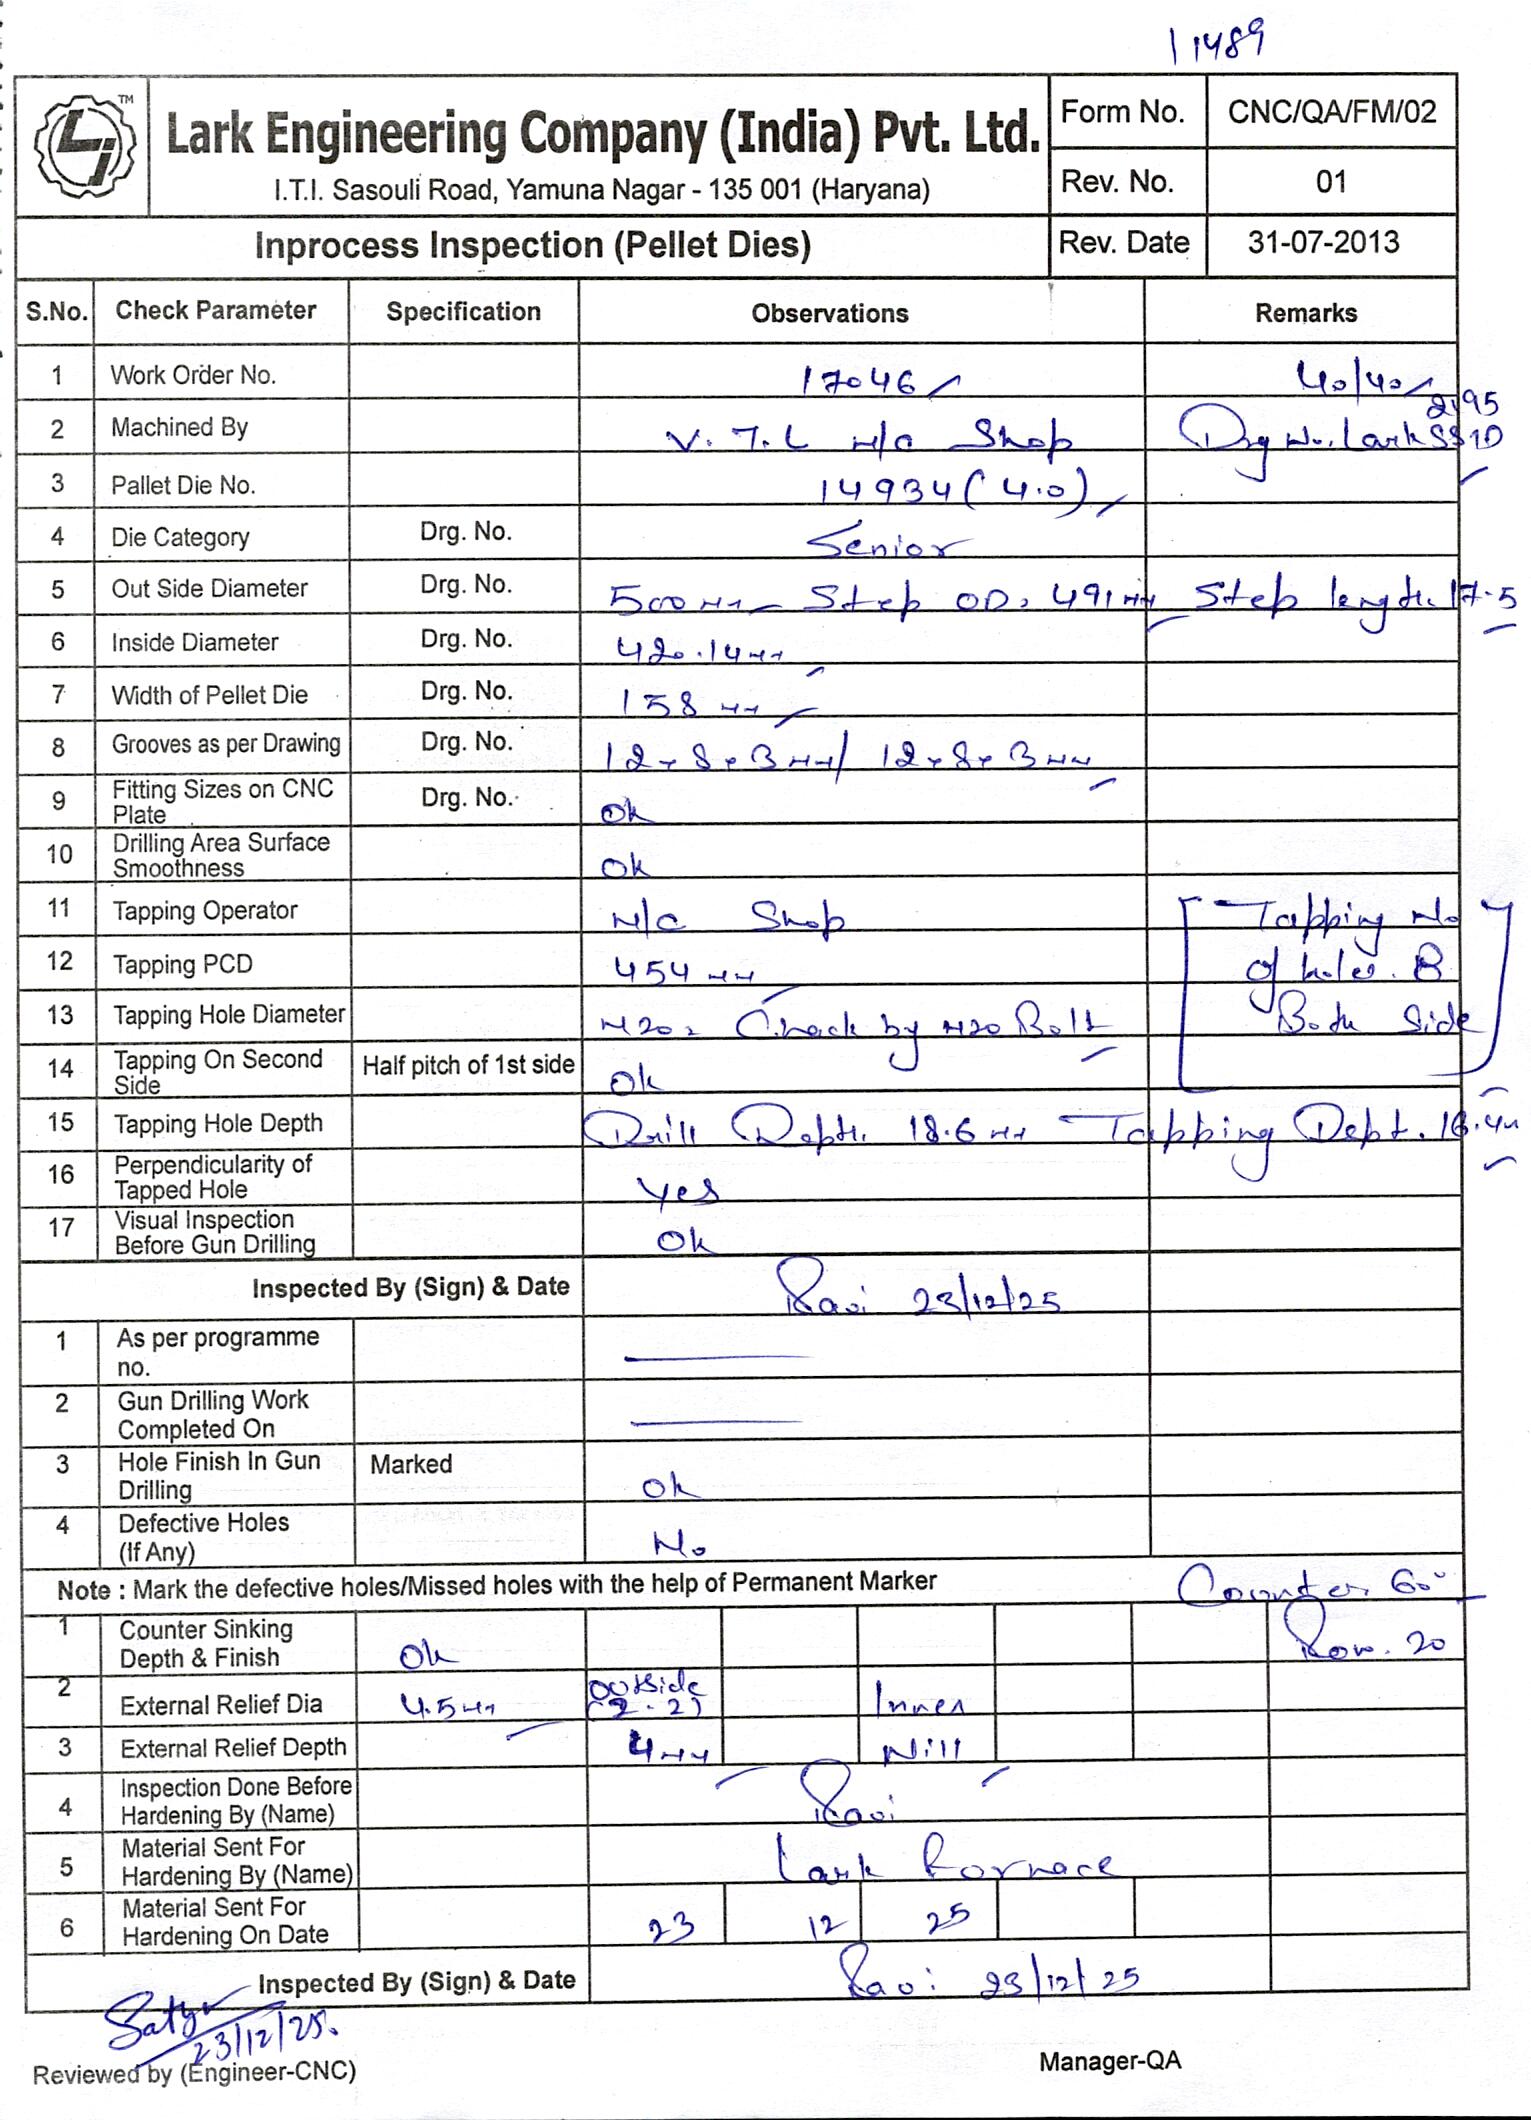 11489
TM
Lark Engineering Company (India) Pvt. Ltd.
I.T.I. Sasouli Road, Yamuna Nagar - 135 001 (Haryana)
Form No. CNC/QA/FM/02
Rev. No. 01
Inprocess Inspection (Pellet Dies)
Rev. Date 31-07-2013
S.No. Check Parameter Specification Observations Remarks
1 Work Order No. 17046 40/40
2 Machined By V.T.L M/c Shop Drg No. Lark SS1D 2195
3 Pallet Die No. 14934 (4.0)
4 Die Category Drg. No. Senior
5 Out Side Diameter Drg. No. 500 mm Step OD. 491 mm Step length. 17.5
6 Inside Diameter Drg. No. 420.14 mm
7 Width of Pellet Die Drg. No. 158 mm
8 Grooves as per Drawing Drg. No. 12 x 8 x 3 mm / 12 x 8 x 3 mm
9 Fitting Sizes on CNC Plate Drg. No. Ok
10 Drilling Area Surface Smoothness Ok
11 Tapping Operator M/c Shop Tapping No
12 Tapping PCD 454 mm of holes. 8
13 Tapping Hole Diameter M20 Check by M20 Bolt Both Side
14 Tapping On Second Side Half pitch of 1st side Ok
15 Tapping Hole Depth Drill Depth. 18.6 mm Tapping Dept. 16.4m
16 Perpendicularity of Tapped Hole Yes
17 Visual Inspection Before Gun Drilling Ok
Inspected By (Sign) & Date Ravi 23/12/25
1 As per programme no.
2 Gun Drilling Work Completed On
3 Hole Finish In Gun Drilling Marked Ok
4 Defective Holes (If Any) No
Note : Mark the defective holes/Missed holes with the help of Permanent Marker Counter 60°
1 Counter Sinking Depth & Finish Ok Row. 20
2 External Relief Dia 4.5mm Outside (2-2) Inner
3 External Relief Depth 4mm Nill
4 Inspection Done Before Hardening By (Name) Ravi
5 Material Sent For Hardening By (Name) Lark Fornace
6 Material Sent For Hardening On Date 23 12 25
Inspected By (Sign) & Date Ravi 23/12/25
Satyv
23/12/25.
Reviewed by (Engineer-CNC)
Manager-QA